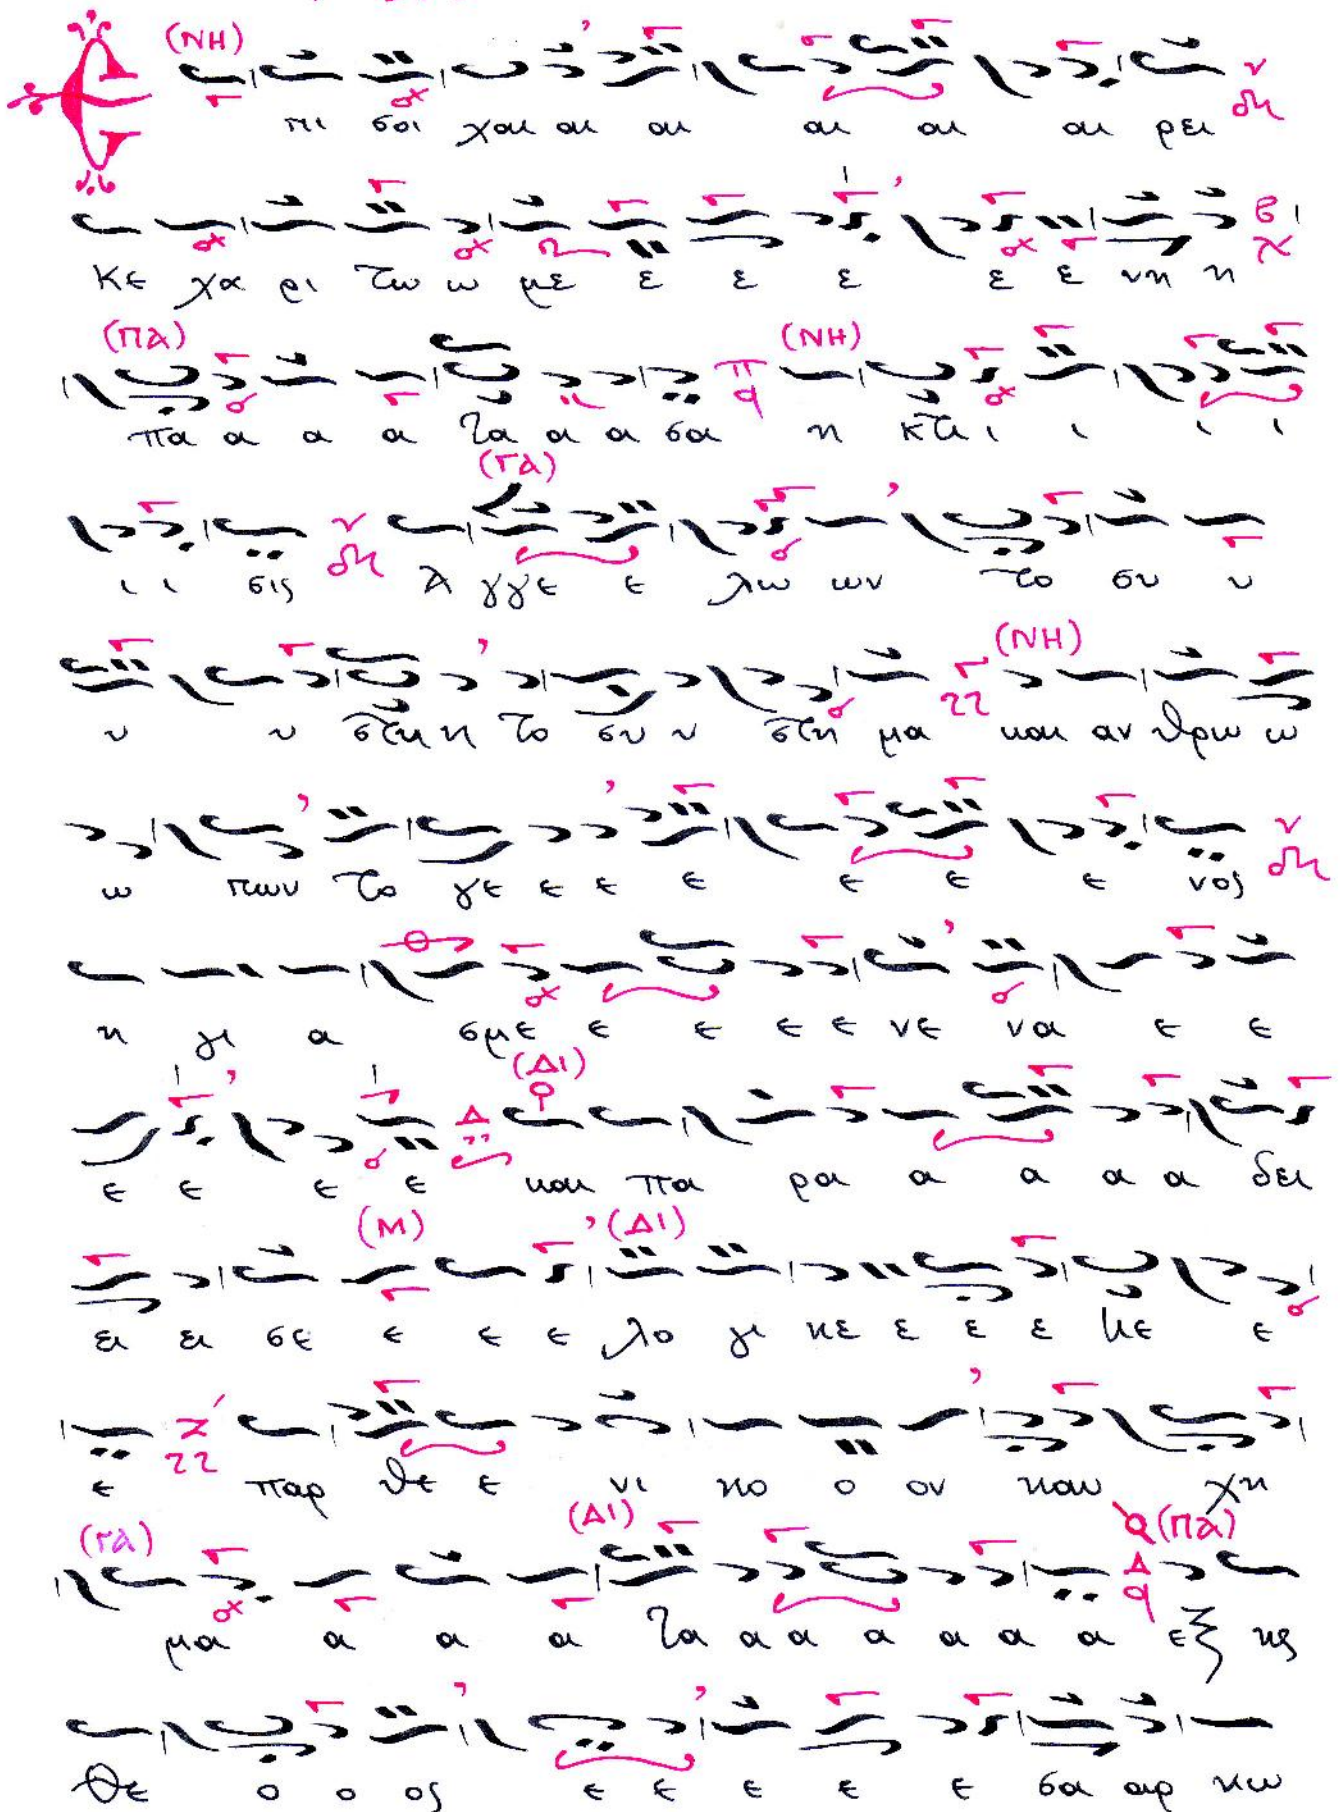 (ΝΗ)
Ε πι σοι χαι αι αι αι αι αι ρει
κε χα ρι τω ω με ε ε ε ε ε νη η
(ΠΑ) (ΝΗ)
πα α α α τα α α σα η κτι ι ι ι ι
(ΓΑ)
ι ι σις Α γγε ε λω ων το συ υ
(ΝΗ)
υ υ στη η το συ υ στη μα και αν θρω ω
ω πων το γε ε ε ε ε ε ε νος
η γι α σμε ε ε ε ε νε να ε ε
(ΔΙ)
ε ε ε ε και πα ρα α α α α δει
(Μ) (ΔΙ)
ει ει σε ε ε ε λο γι κε ε ε ε κε ε
ε παρ θε ε νι κο ο ον καυ χη
(ΓΑ) (ΔΙ) (ΠΑ)
μα α α α τα α α α α α α εξ ης
Θε ο ο ος ε ε ε ε ε σα αρ κω